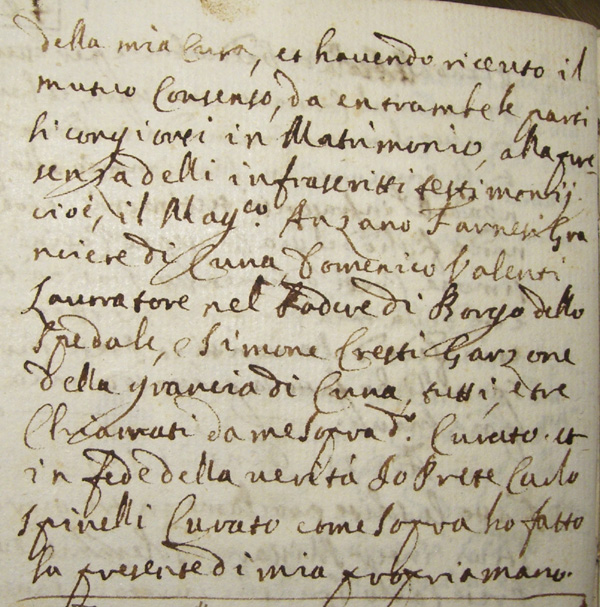 della mia Cura, et havendo riceuto il
mutuo Consenso, da entrambe le parti
li congionsi in Matrimonio, alla pre-
senza delli infrascritti testimonij
cioè, il Mag.co Anzano Farnesi Gra
nciere di Cuna, Domenico Valenti
Lauratore nel Podere di Borgo dello
Spedale, e Simone Cresti Garzone
della grancia di Cuna, tutti, e tre
Chiamati da me Sopra d.o Curato. et
in fede della verità Io Prete Carlo
Spinelli Curato come Sopra ho fatto
la presente di mia propria mano.